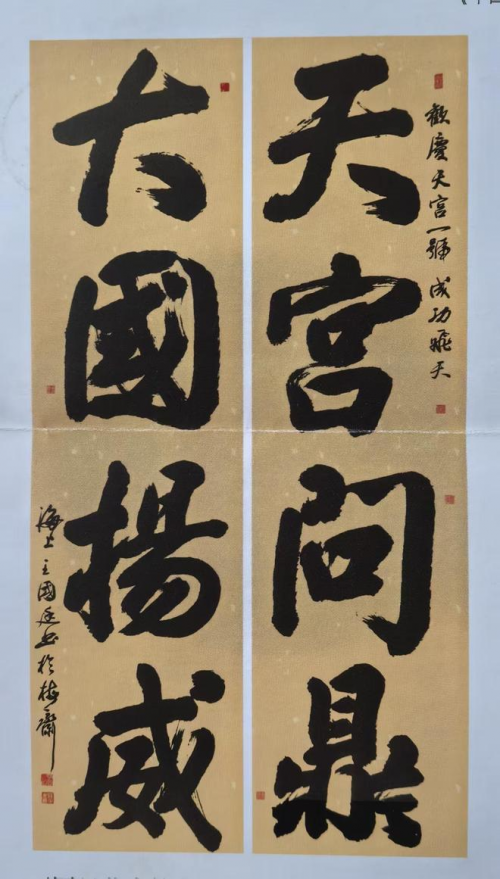 歡慶天宮一號成功飛天
天宮問鼎
大國揚威
海上王國廷書於梅齋